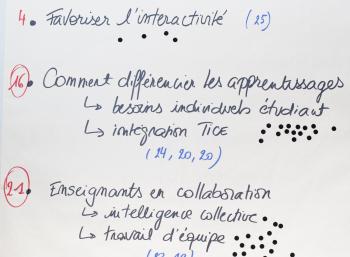 4. Favoriser l'interactivité (25)
16. Comment différencier les apprentissages
↳ besoins individuels étudiant
↳ intégration TICE
(24, 20, 20)
21. Enseignants en collaboration
↳ intelligence collective
↳ travail d'équipe